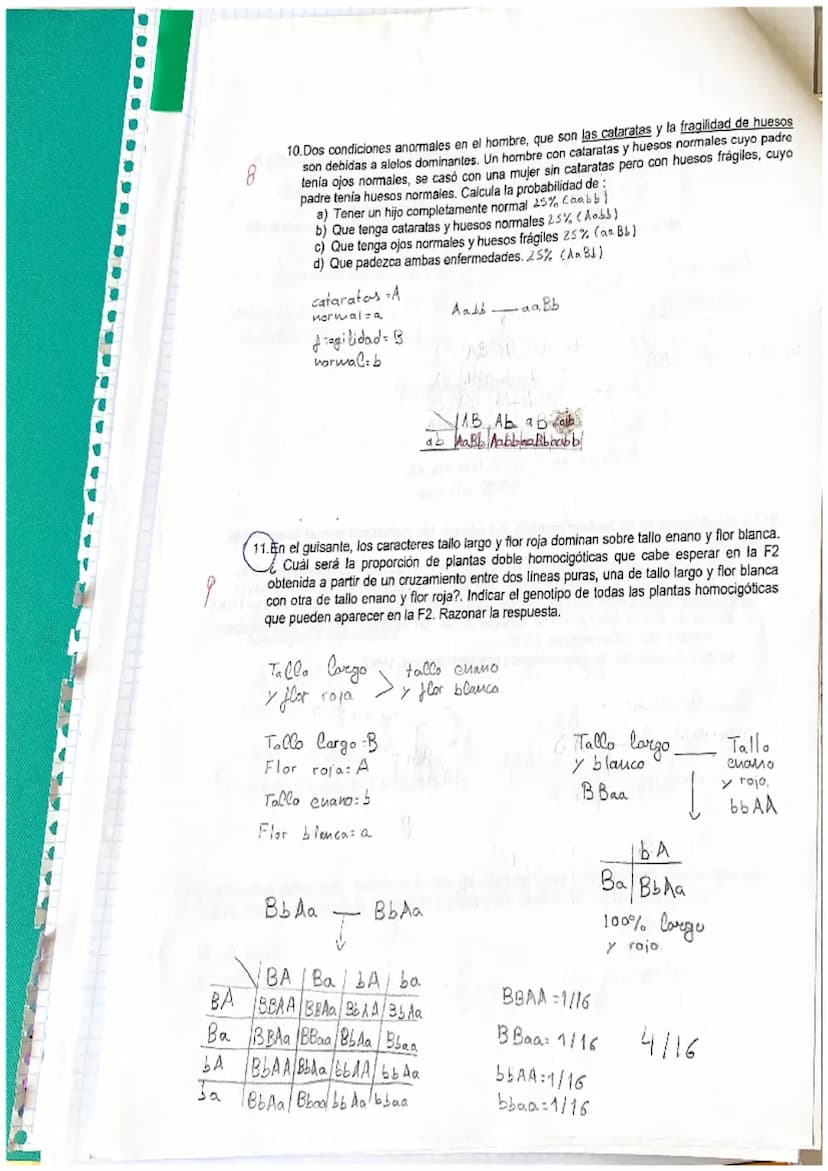 8
10.Dos condiciones anormales en el hombre, que son las cataratas y la fragilidad de huesos
son debidas a alelos dominantes. Un hombre con cataratas y huesos normales cuyo padre
tenía ojos normales, se casó con una mujer sin cataratas pero con huesos frágiles, cuyo
padre tenía huesos normales. Calcula la probabilidad de :
a) Tener un hijo completamente normal 25% (aabb)
b) Que tenga cataratas y huesos normales 25% (Aabb)
c) Que tenga ojos normales y huesos frágiles 25% (aaBb)
d) Que padezca ambas enfermedades. 25% (AaBb)
cataratas=A
normal=a
fragilidad=B
normal=b
Aabb — aaBb
AB Ab aB ab
ab AaBb Aabb aaBb aabb
9
11.En el guisante, los caracteres tallo largo y flor roja dominan sobre tallo enano y flor blanca.
¿ Cuál será la proporción de plantas doble homocigóticas que cabe esperar en la F2
obtenida a partir de un cruzamiento entre dos líneas puras, una de tallo largo y flor blanca
con otra de tallo enano y flor roja?. Indicar el genotipo de todas las plantas homocigóticas
que pueden aparecer en la F2. Razonar la respuesta.
Tallo largo > tallo enano
y flor roja y flor blanca.
Tallo largo=B
Flor roja=A
Tallo enano=b
Flor blanca=a
Tallo largo — Tallo
y blanco enano
y rojo.
BBaa bbAA
bA
Ba BbAa
100% largo
y rojo.
BbAa — BbAa
BA Ba bA ba
BA BBAA BBAa BbAA BbAa
Ba BBAa BBaa BbAa Bbaa
bA BbAA BbAa bbAA bbAa
ba BbAa Bbaa bbAa bbaa
BBAA=1/16
BBaa=1/16 4/16
bbAA=1/16
bbaa=1/16